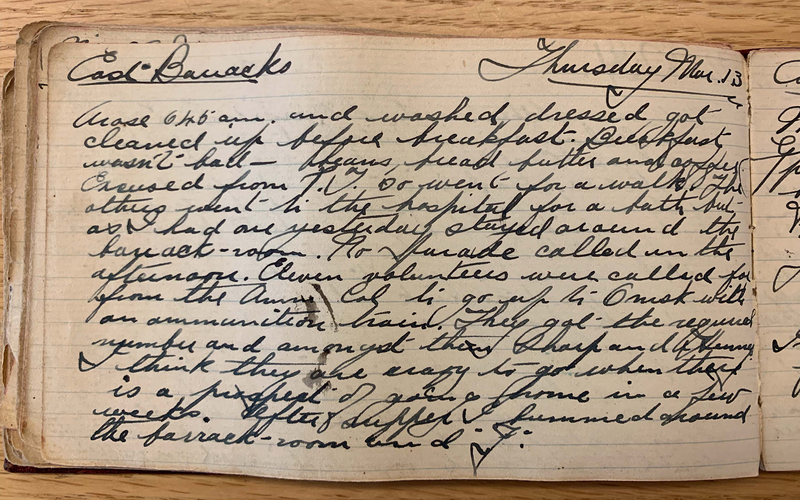 East Barracks Thursday Mar. 13
Arose 645 am. and washed, dressed got
cleaned up before breakfast. Breakfast
wasn't bad — beans, bread butter and coffee.
Excused from P.T. so went for a walk. The
others went to the hospital for a bath but
as I had one yesterday stayed around the
barrack-room. No parade called in the
afternoon. Eleven volunteers were called for
from the Amm. Col to go up to Omsk with
an ammunition train. They got the required
number and amongst them Sharp and
I think they are crazy to go when there
is a prospect of going home in a few
weeks. After supper I bummed around
the barrack-room until